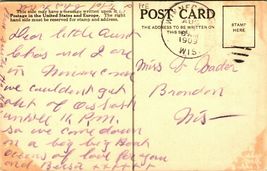 This side may have a message written upon it for
Postage in the United States and Europe. The right
hand side must be reserved for stamp and address.
POST CARD
THE ADDRESS TO BE WRITTEN ON
THIS SIDE
AUG
1909
WIS
Dear little Aunt
and I are
in
we couldn't get
out of Oshkosh
until 12 P.M.
so we came down
on a big big Boat
Oceans of love for you
and
Miss G. Nader
Brandon
Wis